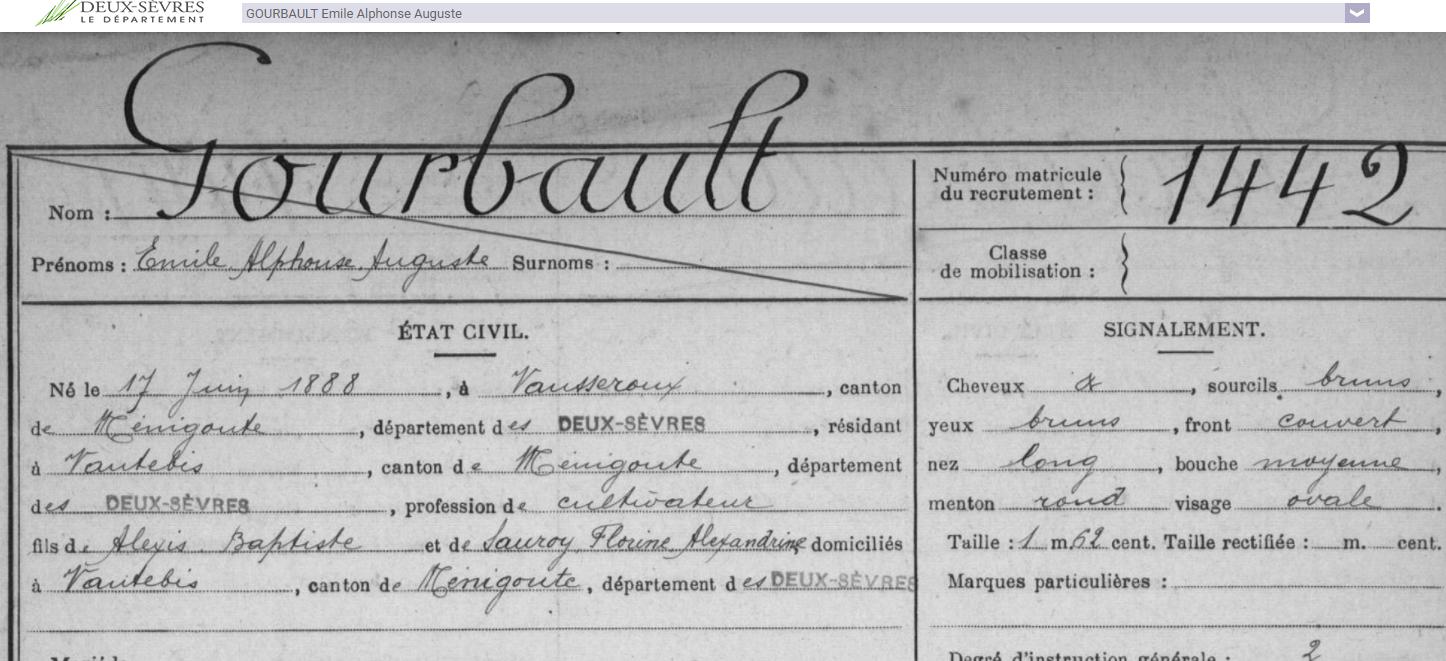 DEUX-SÈVRES
LE DÉPARTEMENT
GOURBAULT Emile Alphonse Auguste
Nom : Gourbault
Prénoms : Emile Alphonse Auguste Surnoms :
Numéro matricule
du recrutement : 1442
Classe
de mobilisation :
ÉTAT CIVIL.
Né le 17 Juin 1888, à Vausseroux, canton
de Ménigoute, département des DEUX-SÈVRES, résidant
à Vautebis, canton de Ménigoute, département
des DEUX-SÈVRES, profession de cultivateur
fils de Alexis Baptiste et de Sauroy Florine Alexandrine domiciliés
à Vautebis, canton de Ménigoute, département des DEUX-SÈVRES
SIGNALEMENT.
Cheveux &, sourcils bruns,
yeux bruns, front couvert,
nez long, bouche moyenne,
menton rond visage ovale.
Taille : 1 m. 62 cent. Taille rectifiée : m. cent.
Marques particulières :
Degré d'instruction générale : 2